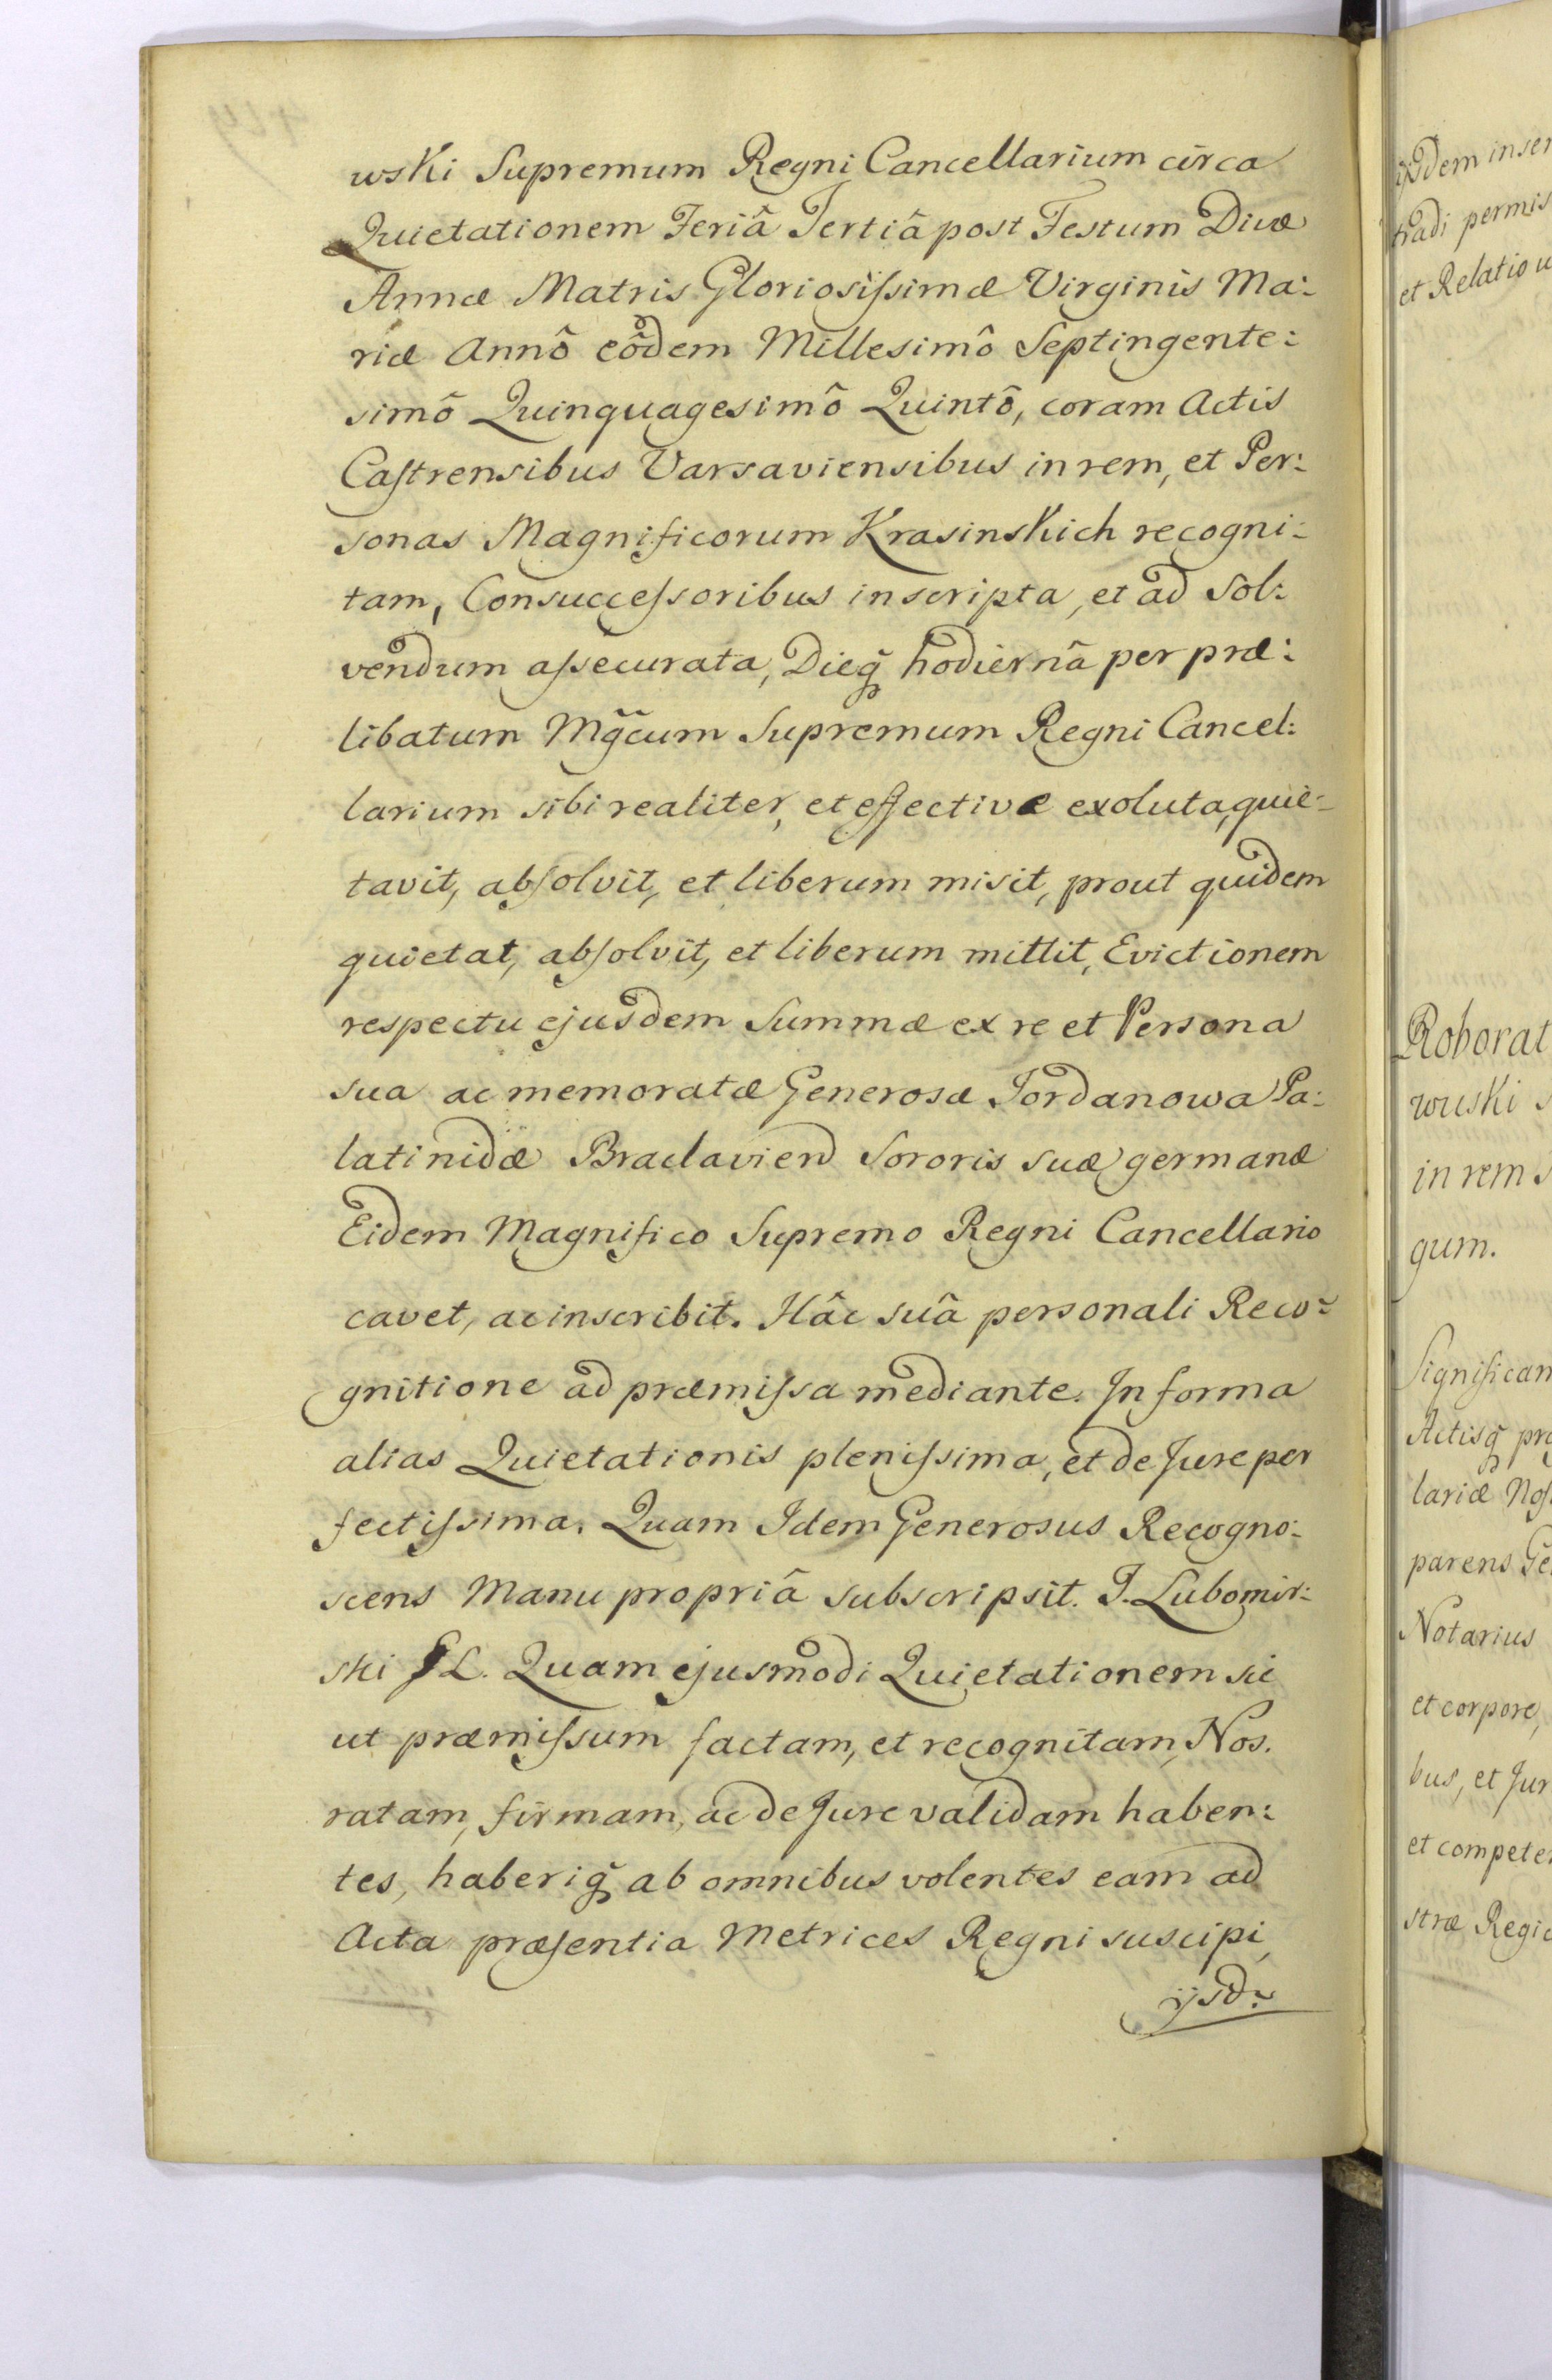 wski Supremum Regni Cancellarium circa
Quietationem Feriâ Tertiâ post Festum Divæ
Annæ Matris Gloriosissimæ Virginis Ma:
riæ Annô eôdem Millesimô Septingente:
simô Quinquagesimô Quintô, coram Actis
Castrensibus Varsaviensibus in rem, et Per:
sonas Magnificorum Krasinskich recogni:
tam, Consuccessoribus inscripta, et ad Sol:
vendum assecurata, Dieq̃ hodiernâ per præ:
libatum Mg̃cum Supremum Regni Cancel:
larium sibi realiter, et effectivæ exoluta, quie:
tavit, absolvit, et liberum misit, prout quidem
quietat, absolvit, et liberum mittit, Evictionem
respectu ejusdem Summæ ex re et Persona
sua ac memoratæ Generosæ Jordanowa Pa:
latinidæ Braclavien Sororis suæ germanæ
Eidem Magnifico Supremo Regni Cancellario
cavet, ac inscribit. Hâc suâ personali Reco:
gnitione ad præmissa mediante. In forma
alias Quietationis plenissima, et de Jure per
fectissima. Quam Idem Generosus Recogno:
scens Manu propriâ subscripsit. J. Lubomir:
ski GL. Quam ejusmodi Quietationem sic
ut præmissum factam, et recognitam, Nos.
ratam, firmam, ac de Jure validam haben:
tes, haberiq̃ ab omnibus volentes eam ad
Acta præsentia Metrices Regni suscipi,
ijsd:
ijsdem inser
tradi permis
et Relatio
Roborat
wuski
in rem
gum.
Significam
Actisq̃
lariæ Nos
parens Ge
Notarius
et corpore,
bus, et Jur
et compete
stræ Regi